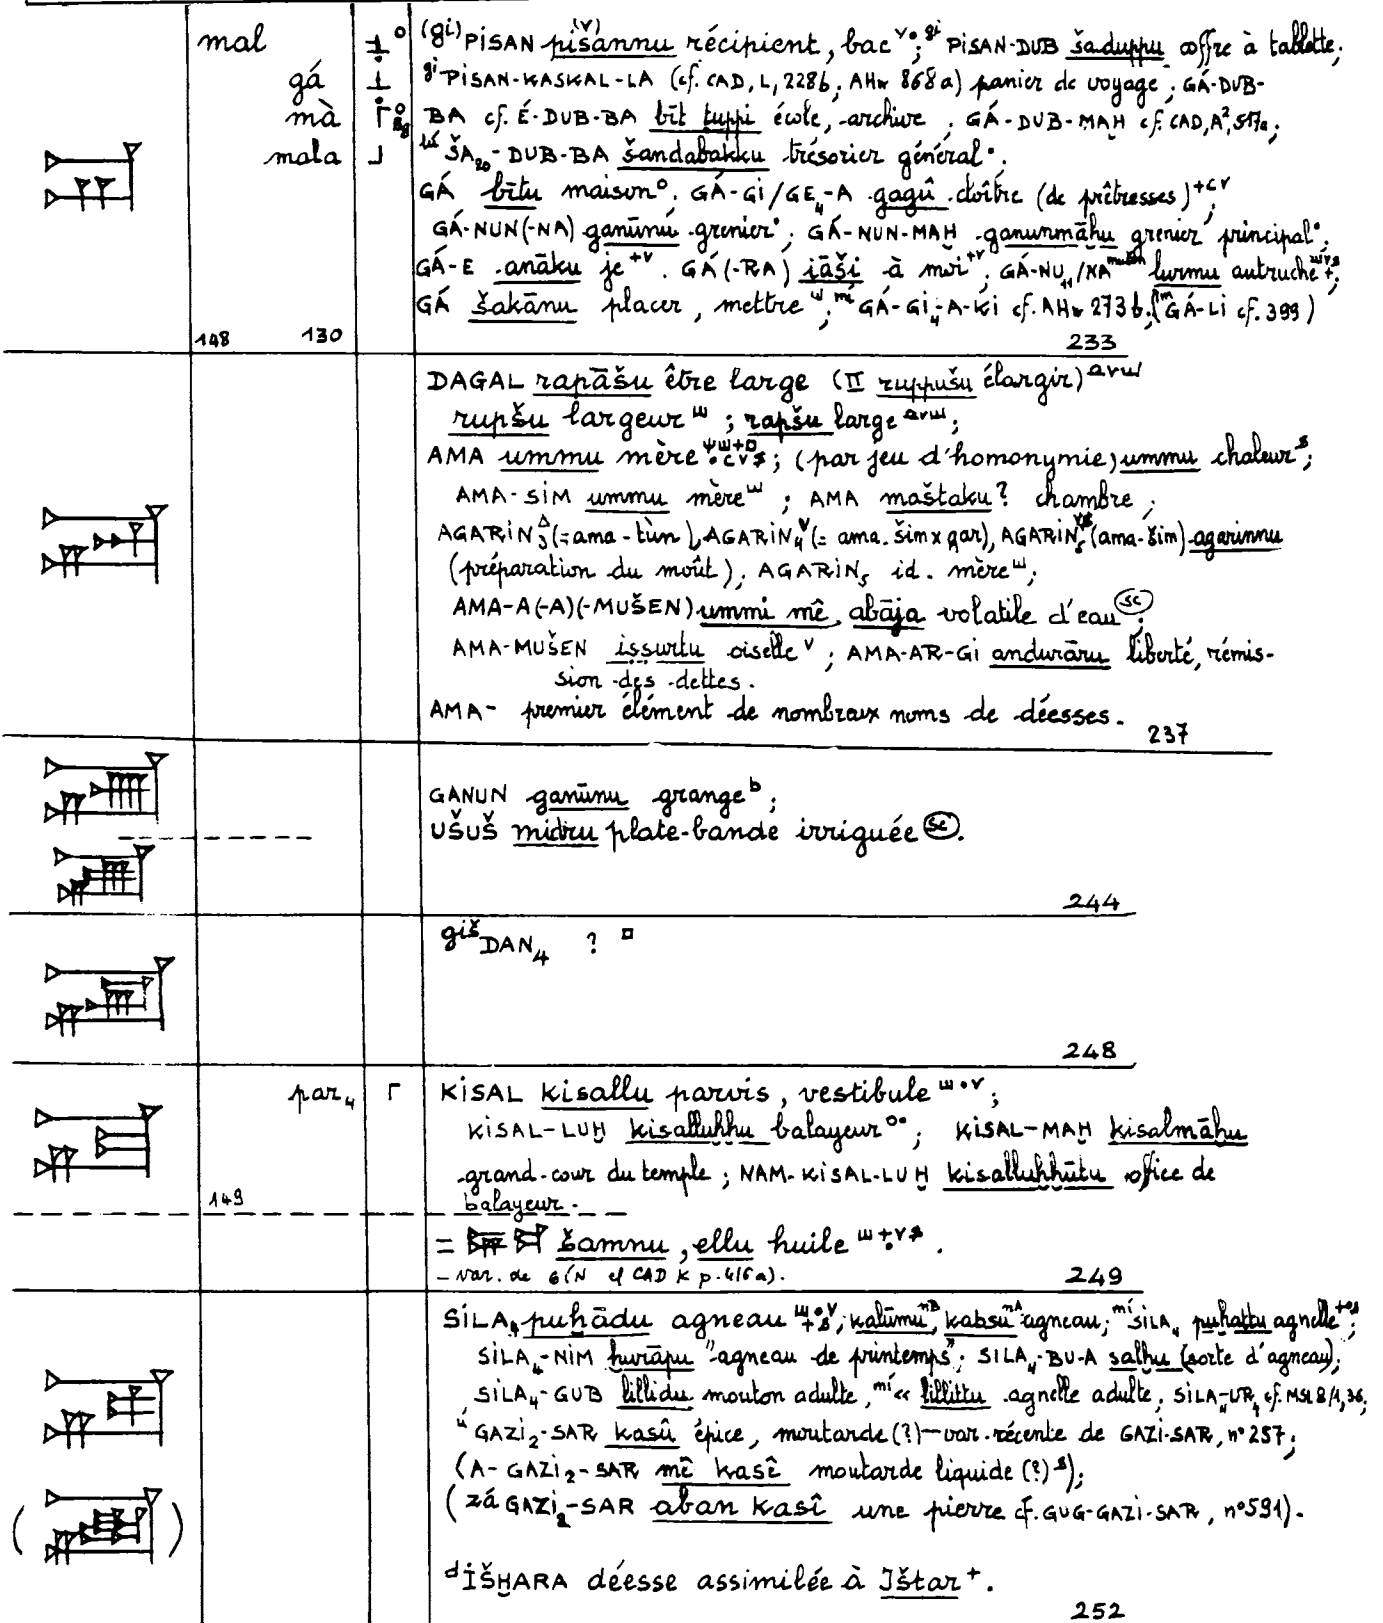 mal
gá
mà
mala
(gi) PISAN pišannu récipient, bac; gi PISAN-DUB šaduppu coffre à tablette;
gi PISAN-KASKAL-LA (cf. CAD, L, 228b, AHw 868a) panier de voyage; GÁ-DUB-
BA cf. É-DUB-BA bīt ṭuppi école, archive; GÁ-DUB-MAḪ cf. CAD, A², 517a;
lú ŠA₂₀-DUB-BA šandabakku trésorier général.
GÁ bītu maison. GÁ-GI/GE₄-A gagû cloître (de prêtresses);
GÁ-NUN(-NA) ganūnu grenier; GÁ-NUN-MAḪ ganunmāḫu grenier principal;
GÁ-E anāku je. GÁ(-RA) iāši à moi; GÁ-NU₁₁/NA mušen lurmu autruche;
GÁ šakānu placer, mettre; mí GÁ-GI₄-A-KI cf. AHw 273b; (m GÁ-LI cf. 399)
148 130 233
DAGAL rapāšu être large (II ruppušu élargir)
rupšu largeur; rapšu large;
AMA ummu mère; (par jeu d'homonymie) ummu chaleur;
AMA-SIM ummu mère; AMA maštaku? chambre;
AGARIN₃ (=ama-tùn), AGARIN₄ (= ama.šimxgar), AGARIN₅ (ama-šim) agarinnu
(préparation du moût), AGARIN₅ id. mère;
AMA-A(-A)(-MUŠEN) ummi mê, abāja volatile d'eau (sc);
AMA-MUŠEN iṣṣurtu oiselle; AMA-AR-GI andurāru liberté, rémis-
sion des dettes.
AMA- premier élément de nombraux noms de déesses.
237
GANUN ganūnu grange b;
UŠUŠ midru plate-bande irriguée (sc).
244
giš DAN₄ ?
248
par₄
KISAL kisallu parvis, vestibule;
KISAL-LUḪ kisalluḫḫu balayeur; KISAL-MAḪ kisalmāḫu
grand-cour du temple; NAM-KISAL-LUḪ kisalluḫḫūtu office de
149 balayeur.
= šamnu, ellu huile.
- var. de
249
SILA₄ puḫādu agneau; kalūmu nB, kabsu nA agneau; mí SILA₄ puḫattu agnelle;
SILA₄-NIM ḫurāpu "agneau de printemps"; SILA₄-BU-A salḫu (sorte d'agneau);
SILA₄-GUB lillidu mouton adulte, mí « lillittu agnelle adulte; SILA₄-UR₄ cf. MSL 8/1, 36;
ú GAZI₂-SAR kasû épice, moutarde (?) — var. récente de GAZI-SAR, n° 257;
(A-GAZI₂-SAR mê kasê moutarde liquide (?));
(zá GAZI₂-SAR aban kasî une pierre cf. GUG-GAZI-SAR, n° 591).
d IŠḪARA déesse assimilée à Ištar.
252